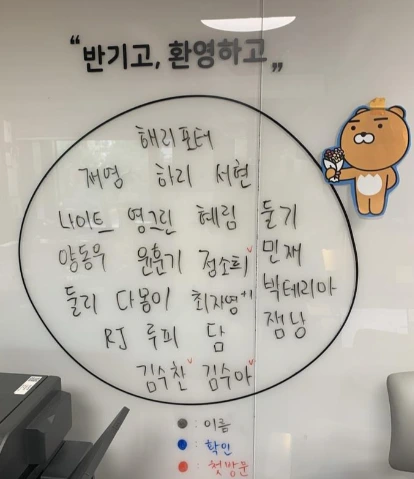 "반기고, 환영하고"
해리포터
재영 하리 서현
나이트 영그린 혜림 둘기
양동우 윤훈기 정소희✓ 민재
둘리 다몽이 최자영+1 박테리아
RJ 루피 담 잼낭
김수찬✓ 김수아✓
● : 이름
● : 확인
● : 첫방문